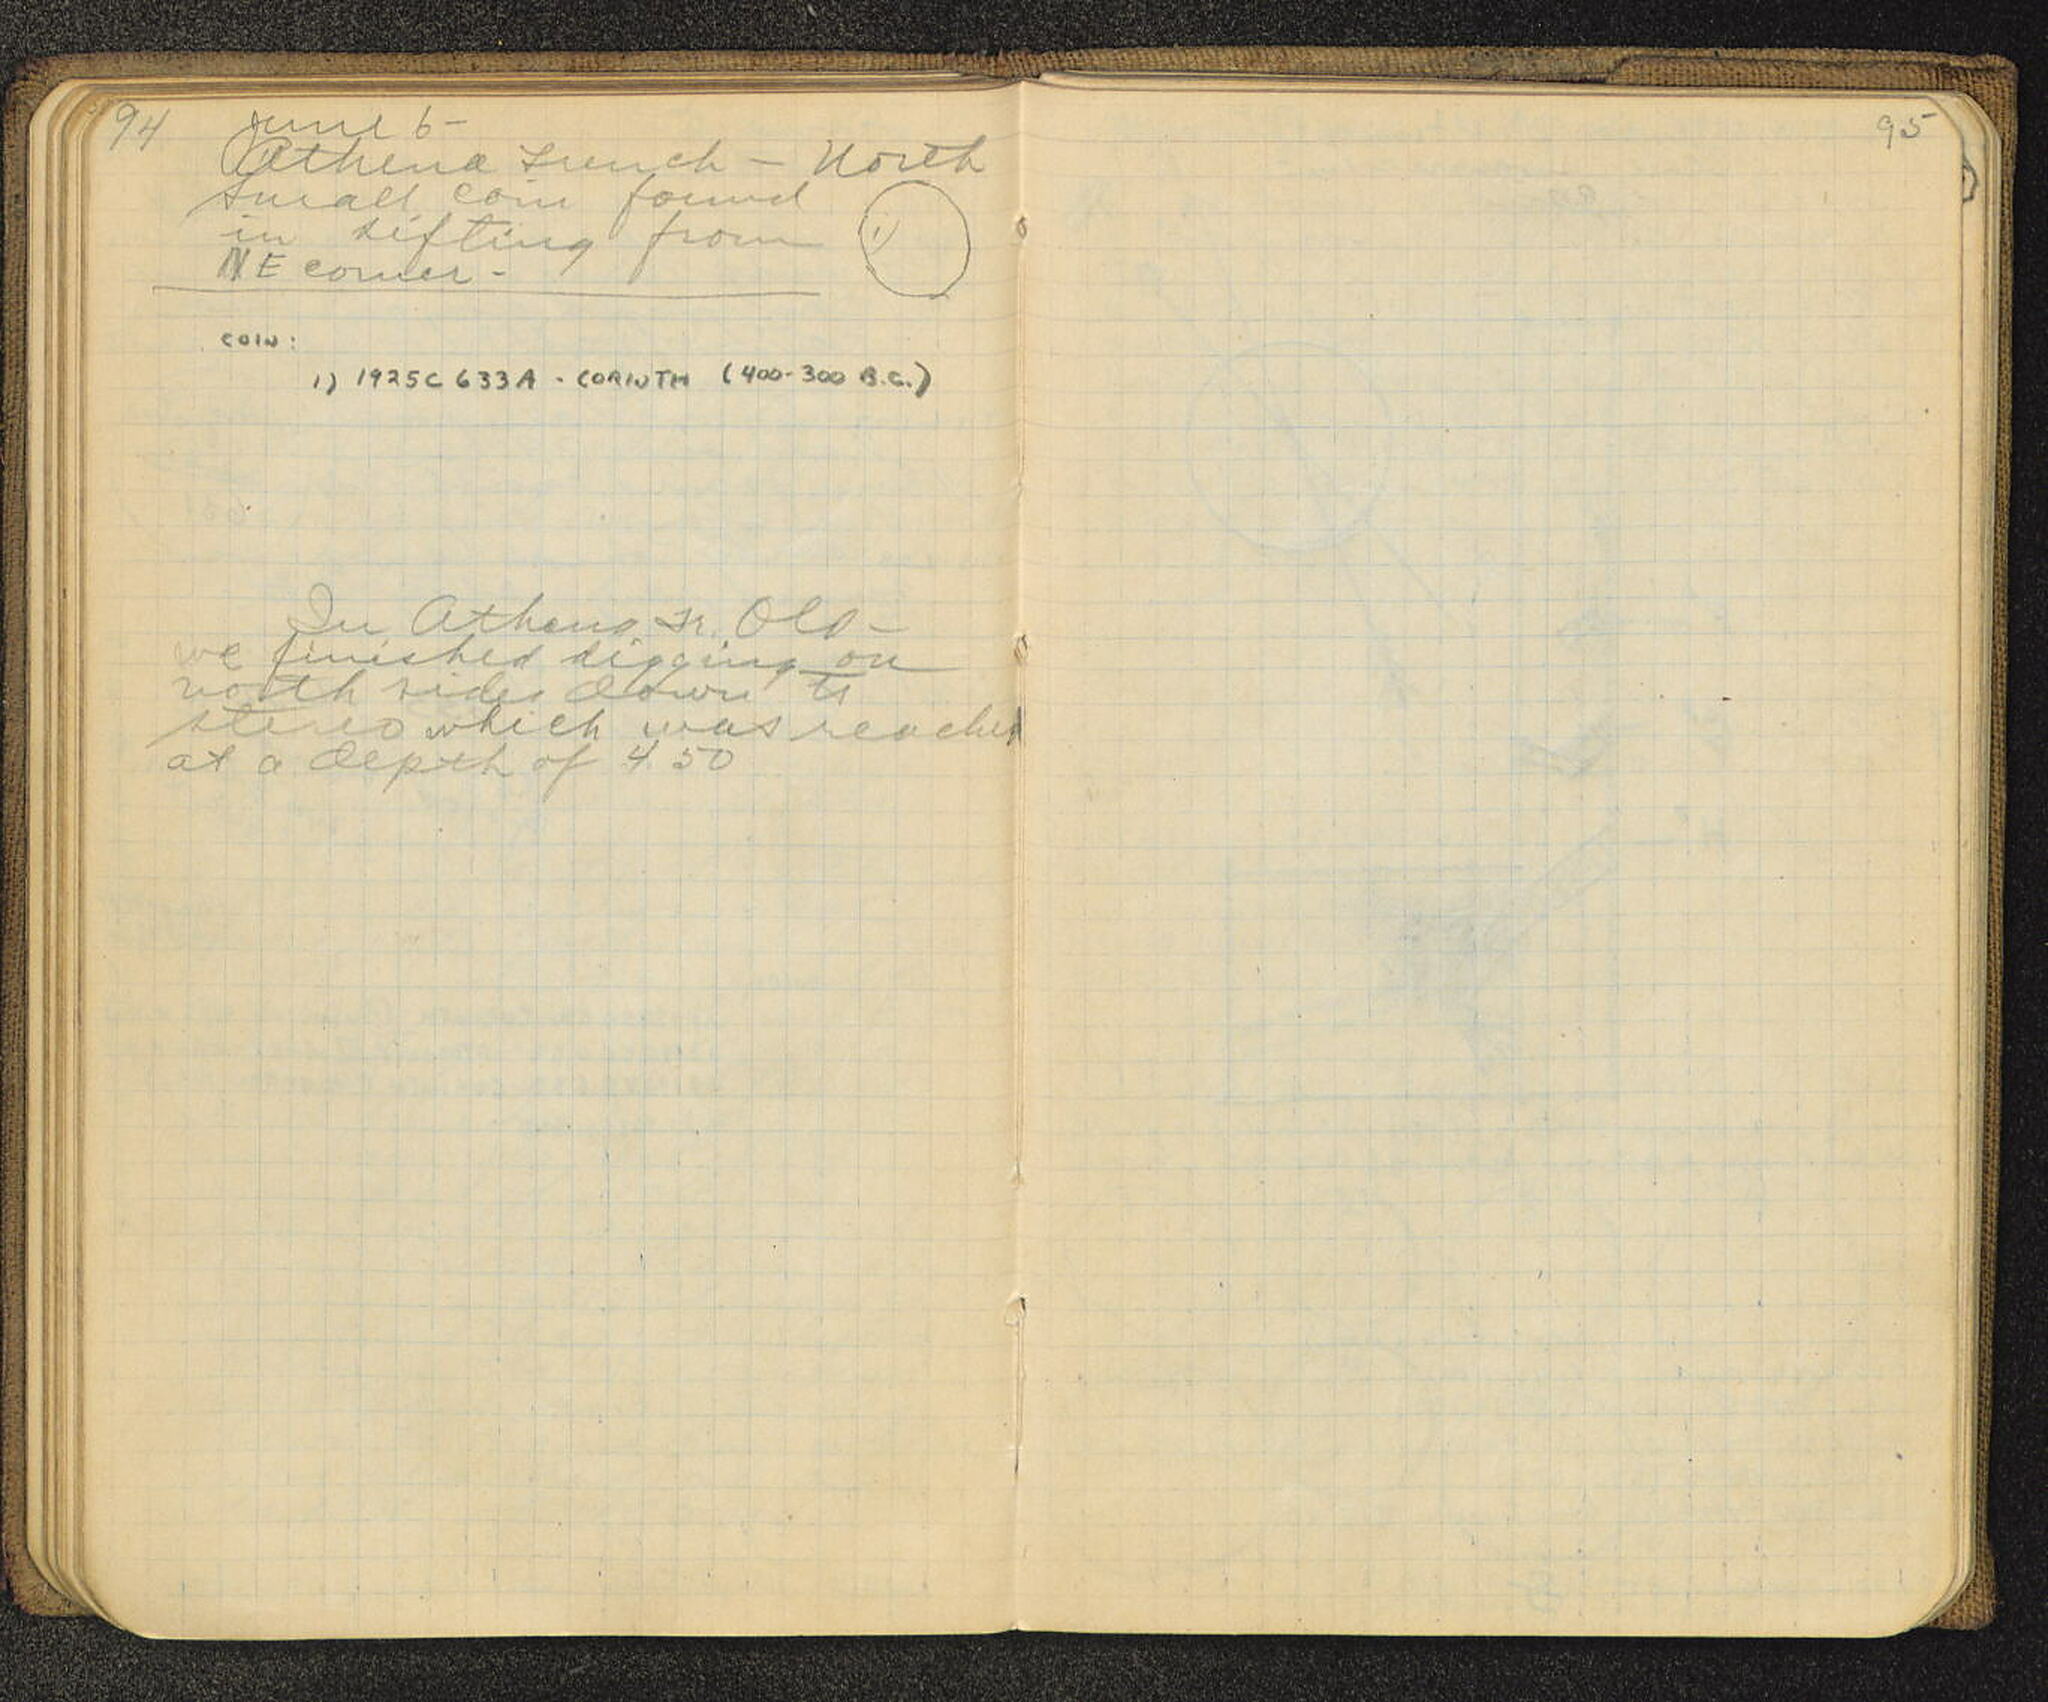 94
June 6-
Athena Trench - North
Small coin found
in sifting from
1)
NE corner -
COIN:
1) 1925C 633A - CORINTH (400-300 B.C.)
In Athena Tr. Old -
we finished digging on
north sides down to
stereo which was reached
at a depth of 4.50
95